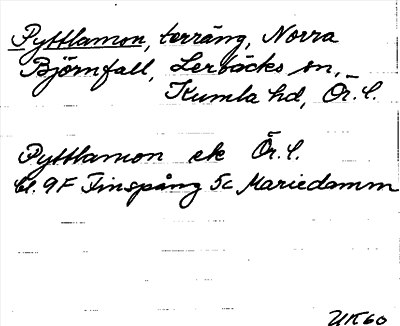 Pyttlamon, terräng, Norra
Björnfall, Lerbäcks sn,
Kumla hd, Ör. l.
Pyttlamon ek Ör. l.
bl. 9F Finspång 5c Mariedamm
UK60